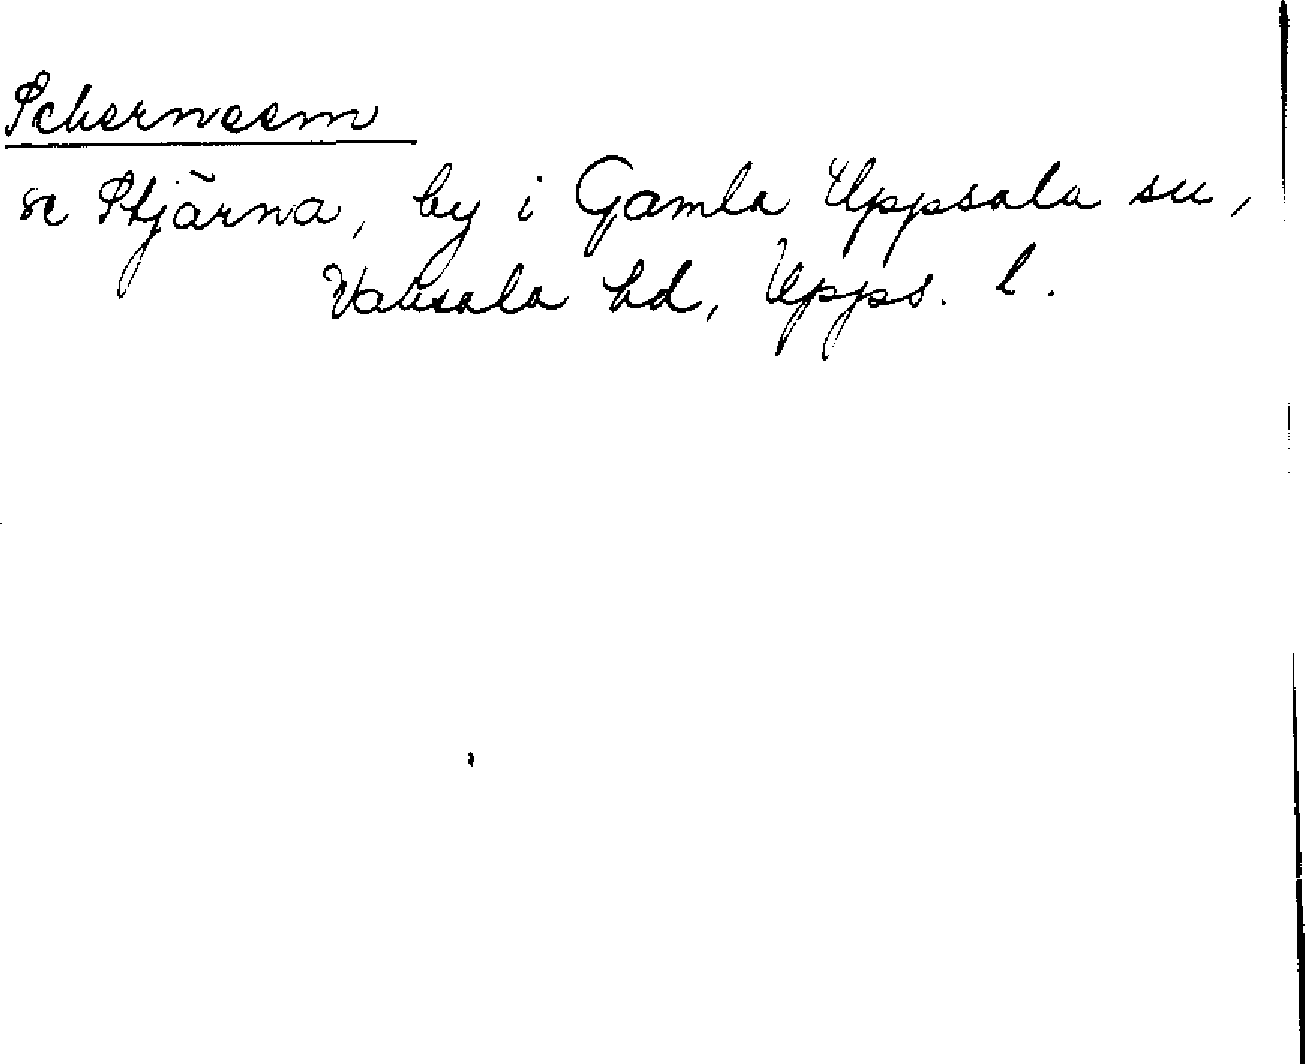 Scherneem
se Stjärna, by i Gamla Uppsala sn,
Vaksala hd, Upps. l.